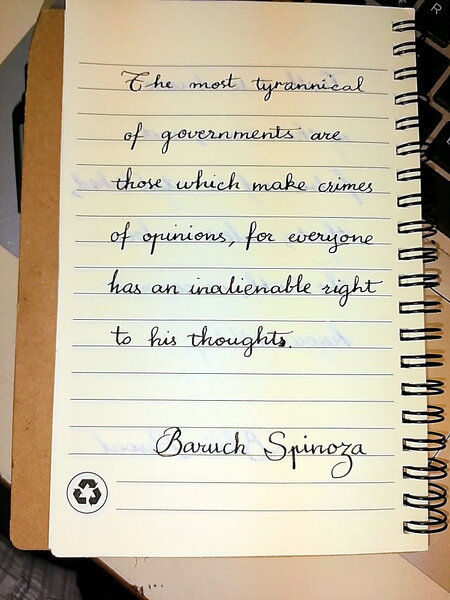 The most tyrannical
of governments are
those which make crimes
of opinions, for everyone
has an inalienable right
to his thoughts.
Baruch Spinoza